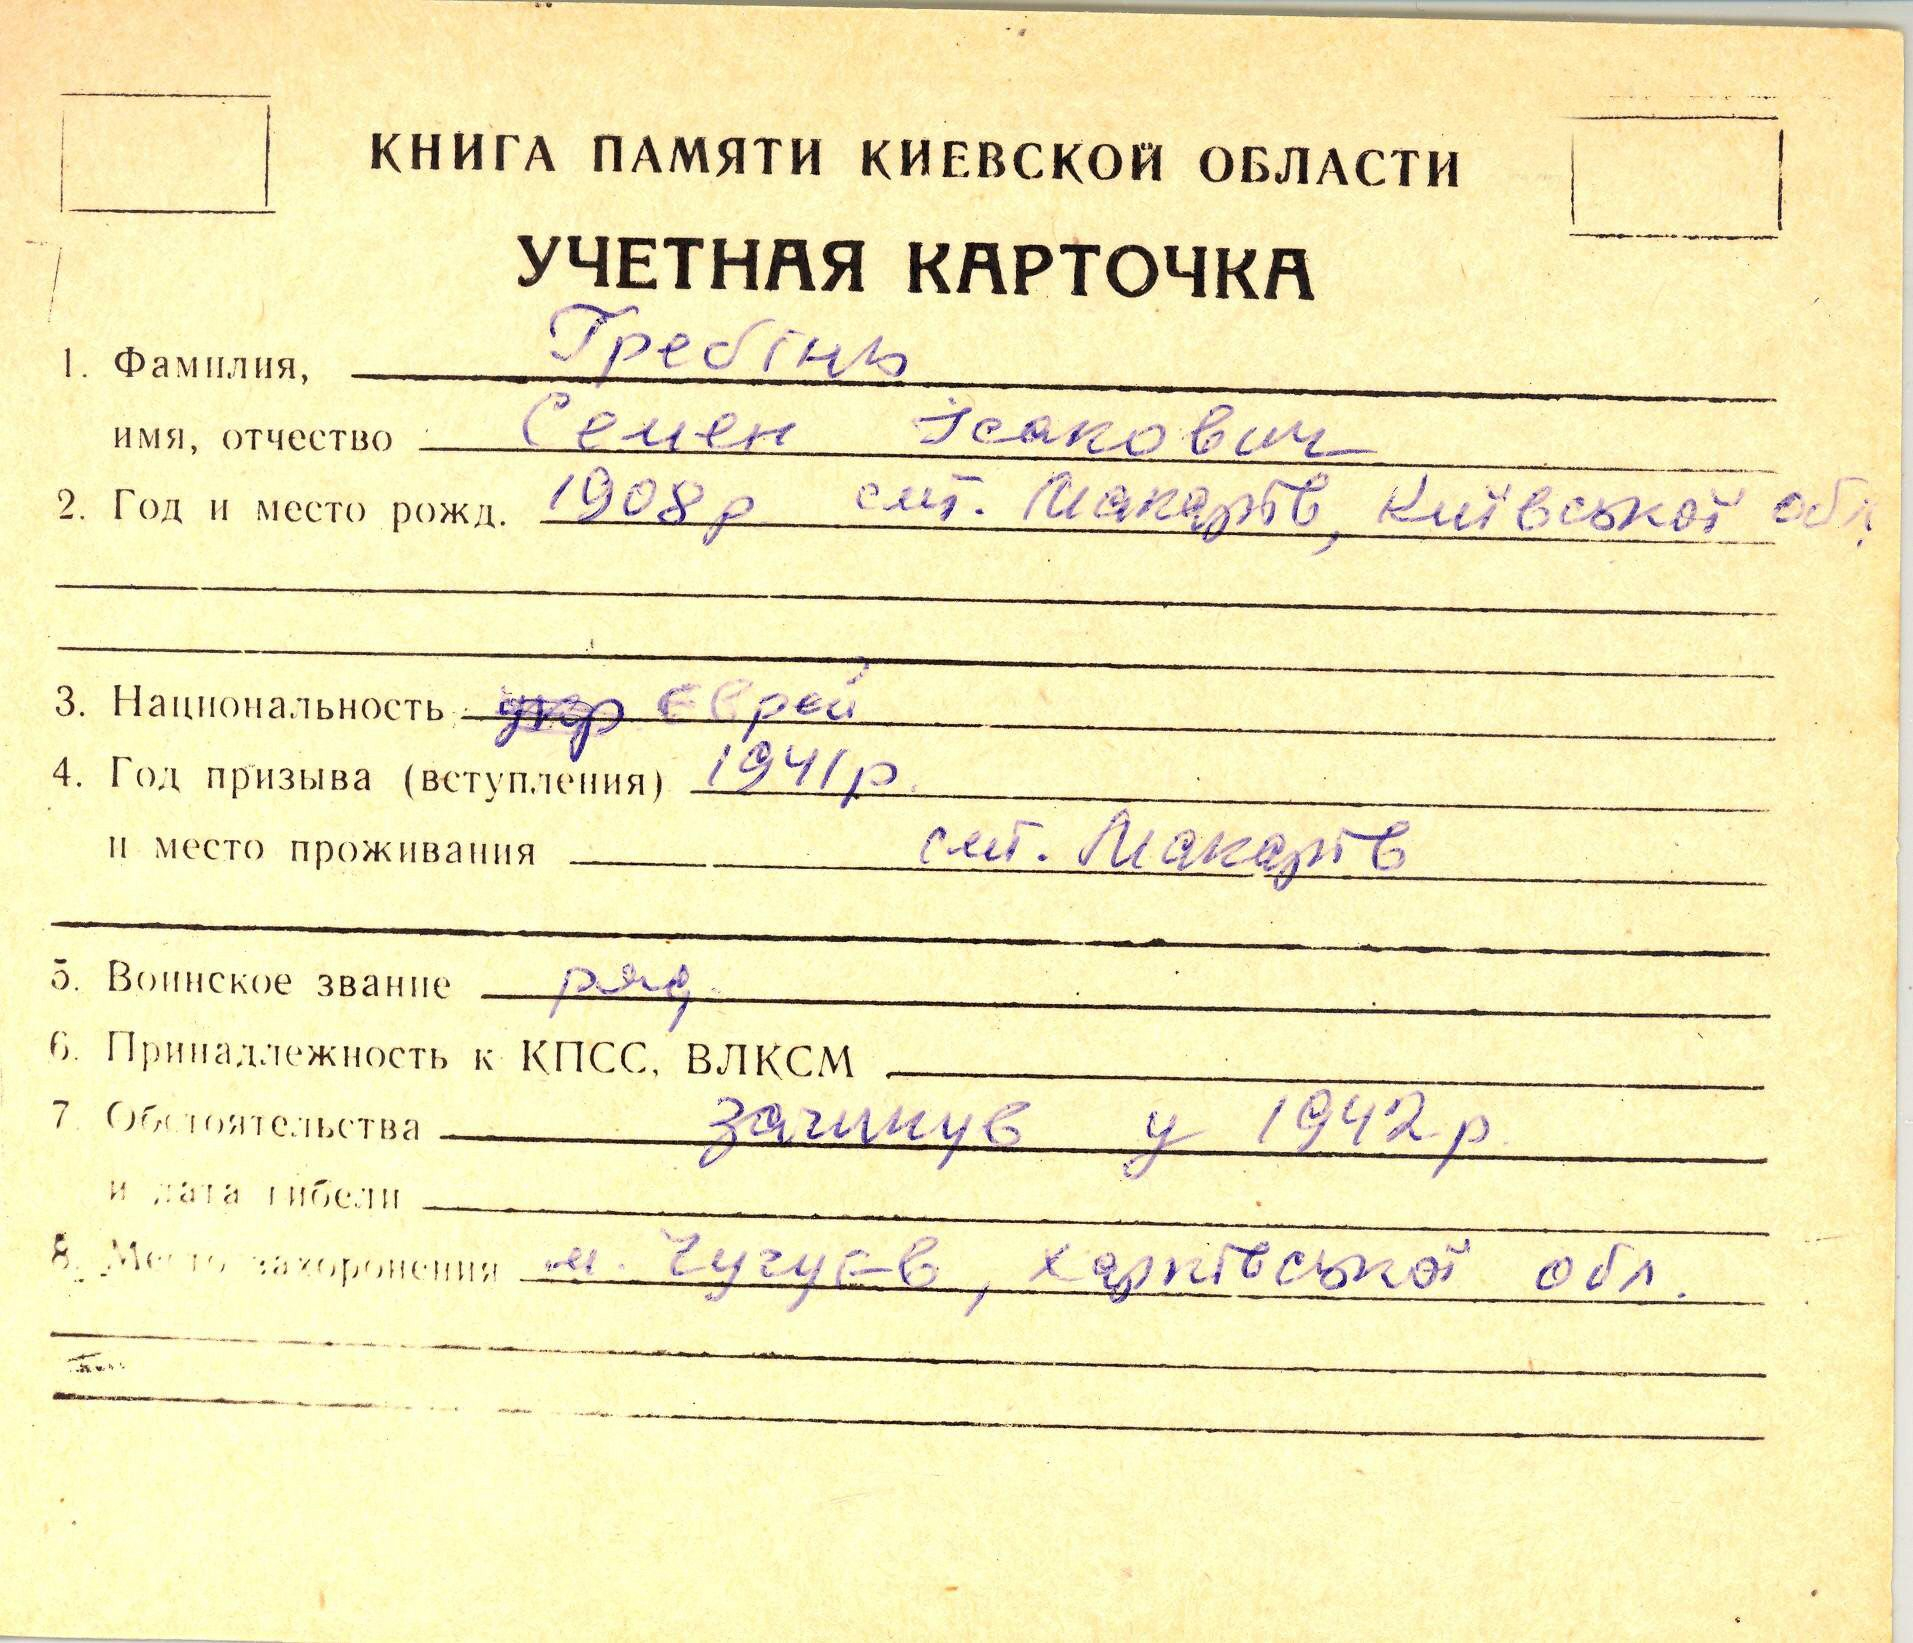 КНИГА ПАМЯТИ КИЕВСКОЙ ОБЛАСТИ
УЧЕТНАЯ КАРТОЧКА
1. Фамилия, Гребінь
имя, отчество Семен Ісакович
2. Год и место рожд. 1908р смт. Макарів, Київської обл.
3. Национальность укр єврей
4. Год призыва (вступления) 1941р.
и место проживания смт. Макарів
5. Воинское звание ряд.
6. Принадлежность к КПСС, ВЛКСМ
7. Обстоятельства загинув у 1942 р.
и дата гибели
8. Место захоронения м. Чугуєв, Харківської обл.